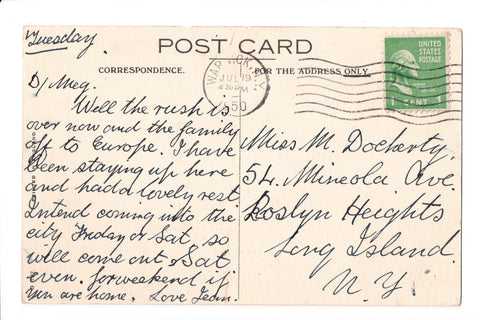 Tuesday.
POST CARD
CORRESPONDENCE.
FOR THE ADDRESS ONLY.
WARWICK, N.Y.
JUL 19
2 30 PM
1950
UNITED STATES
POSTAGE
1 CENT 1
D/ Meg.
Well the rush is
over now and the family
off to Europe. I have
been staying up here
and had a lovely rest.
Intend coming into the
city Friday or Sat, so
will come out Sat
even. for weekend if
you are home. Love Jean.
Miss M. Docherty,
54. Mineola Ave.
Roslyn Heights
Long Island.
N. Y.